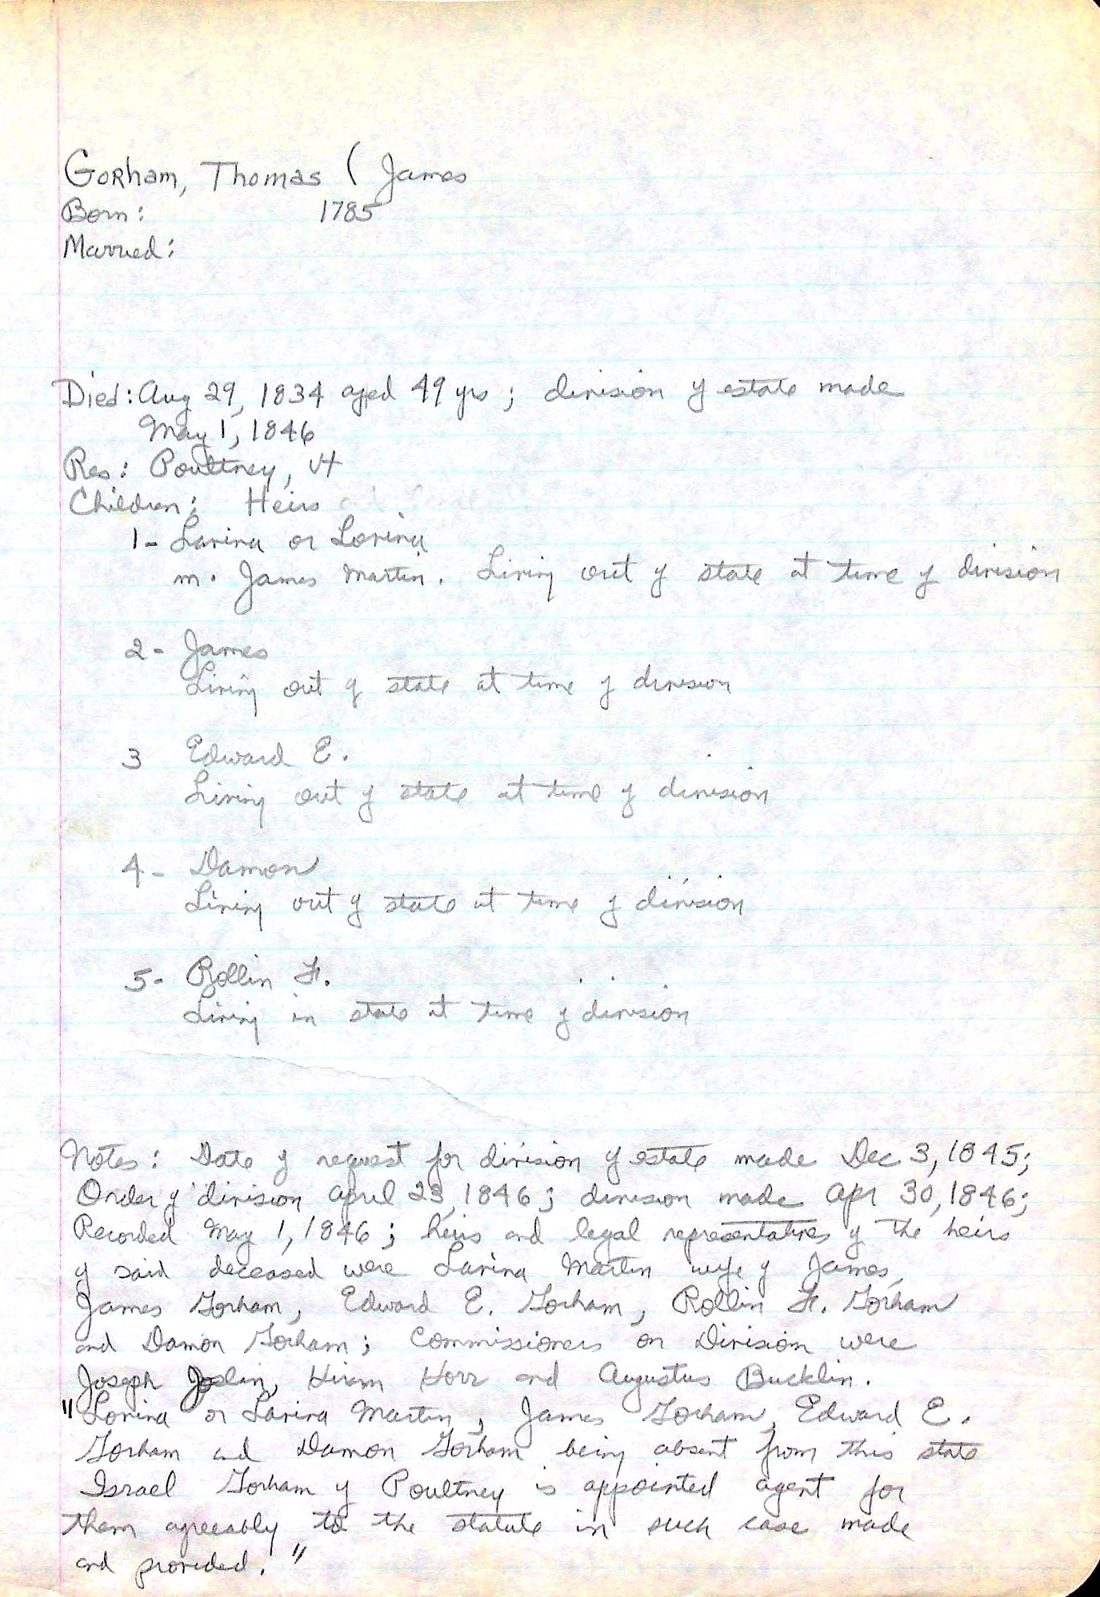 Gorham, Thomas ( James
Born: 1785
Married:
Died: Aug 29, 1834 aged 49 yrs ; division of estate made
May 1, 1846
Res: Poultney, Vt
Children: Heirs
1- Lavina or Lovina
m. James Martin. Living out of state at time of division
2- James
Living out of state at time of division
3 Edward E.
Living out of state at time of division
4- Damon
Living out of state at time of division
5- Rollin F.
Living in state at time of division
Notes: Date of request for division of estate made Dec 3, 1845;
Order of division April 23, 1846; division made Apr 30, 1846;
Recorded May 1, 1846; heirs and legal representatives of the heirs
of said deceased were Lavina Martin wife of James,
James Gorham, Edward E. Gorham, Rollin F. Gorham
and Damon Gorham; Commissioners on Division were
Joseph Joslin, Hiram Horr and Augustus Bucklin.
"Lovina or Lavina Martin, James Gorham, Edward E.
Gorham and Damon Gorham being absent from this state
Israel Gorham of Poultney is appointed agent for
them agreeably to the statute in such case made
and provided."